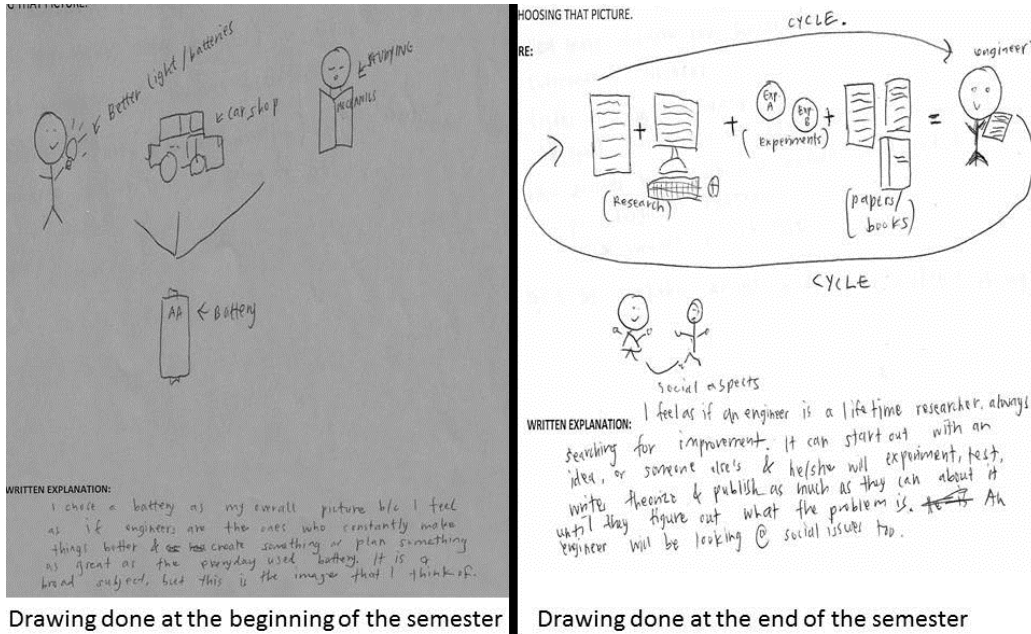 G THAT PICTURE.
Better light/batteries
← car shop
← STUDYING
MECHANICS
AA
← Battery
WRITTEN EXPLANATION:
I chose a battery as my overall picture b/c I feel
as if engineers are the ones who constantly make
things better & create something or plan something
as great as the everyday used battery. It is a
broad subject, but this is the image that I think of.
Drawing done at the beginning of the semester
HOOSING THAT PICTURE.
RE:
CYCLE.
engineer
+
+
Exp. A
Exp B
+
=
(Research)
(Experiments)
(papers/
books)
CYCLE
social aspects
WRITTEN EXPLANATION:
I feel as if an engineer is a lifetime researcher. always
searching for improvement. It can start out with an
idea, or someone else's & he/she will experiment, test,
write, theorize & publish as much as they can about it
until they figure out what the problem is. An
engineer will be looking @ social issues too.
Drawing done at the end of the semester